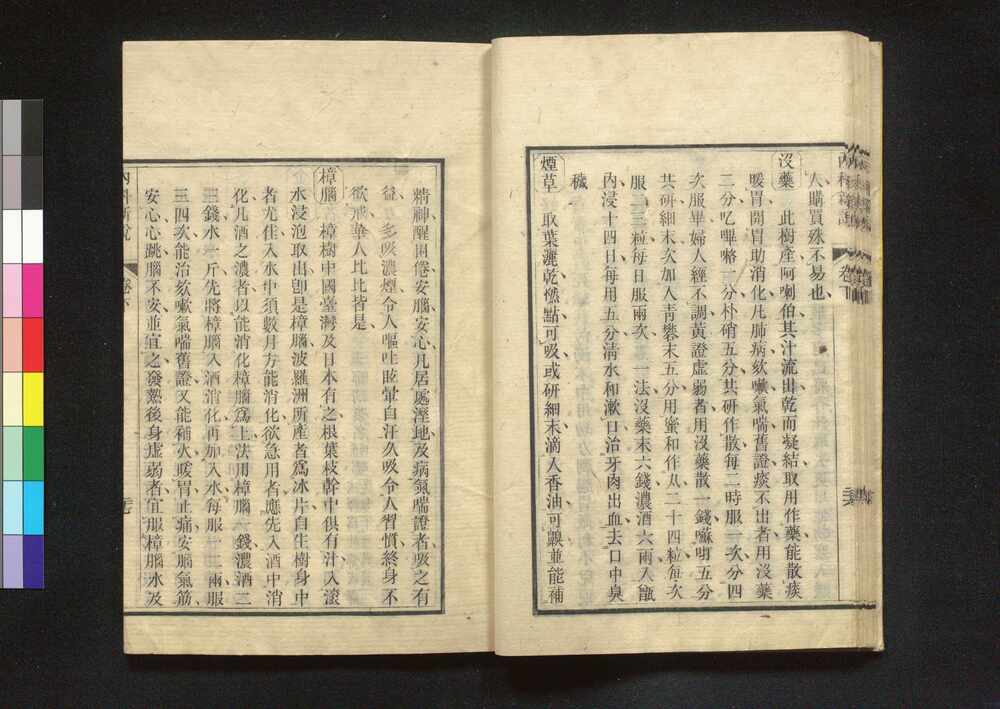 內科新說
卷下
人購買殊不易也
沒藥 此樹產阿喇伯其汁流出乾而凝結取用作藥能散痰
暖胃開胃助消化凡肺病欬嗽氣喘舊證痰不出者用沒藥
二分叱嗶格二分朴硝五分共研作散每二時服一次分四
次服畢婦人經不調黃證虛弱者用沒藥散一錢 五分
共研細末次加入青礬末五分用蜜和作丸二十四粒每次
服二三粒每日服兩次 一法沒藥末六錢濃酒六兩入甑
內浸十四日每用五分清水和漱口治牙肉出血去口中臭
穢
煙草 取葉灑乾燃點可吸或研細末滴入香油可齅並能補
精神醒困倦安腦安心凡居處溼地及病氣喘證者吸之有
益、多吸濃煙令人嘔吐眩暈自汗久吸令人習慣終身不
欲戒華人比比皆是
樟腦 樟樹中國臺灣及日本有之根葉枝幹中俱有汁入滾
水浸泡取出卽是樟腦波羅洲所產者爲冰片自生樹身中
者尤佳入水中須數月方能消化欲急用者應先入酒中消
化凡酒之濃者以能消化樟腦爲上法用樟腦一錢濃酒二
三錢水一斤先將樟腦入酒消化再加入水每服一二兩服
三四次能治欬嗽氣喘舊證又能補火暖胃止痛安腦氣筋
安心心跳腦不安並宜之發熱後身虛弱者宜服樟腦水及
內科新說
卷下